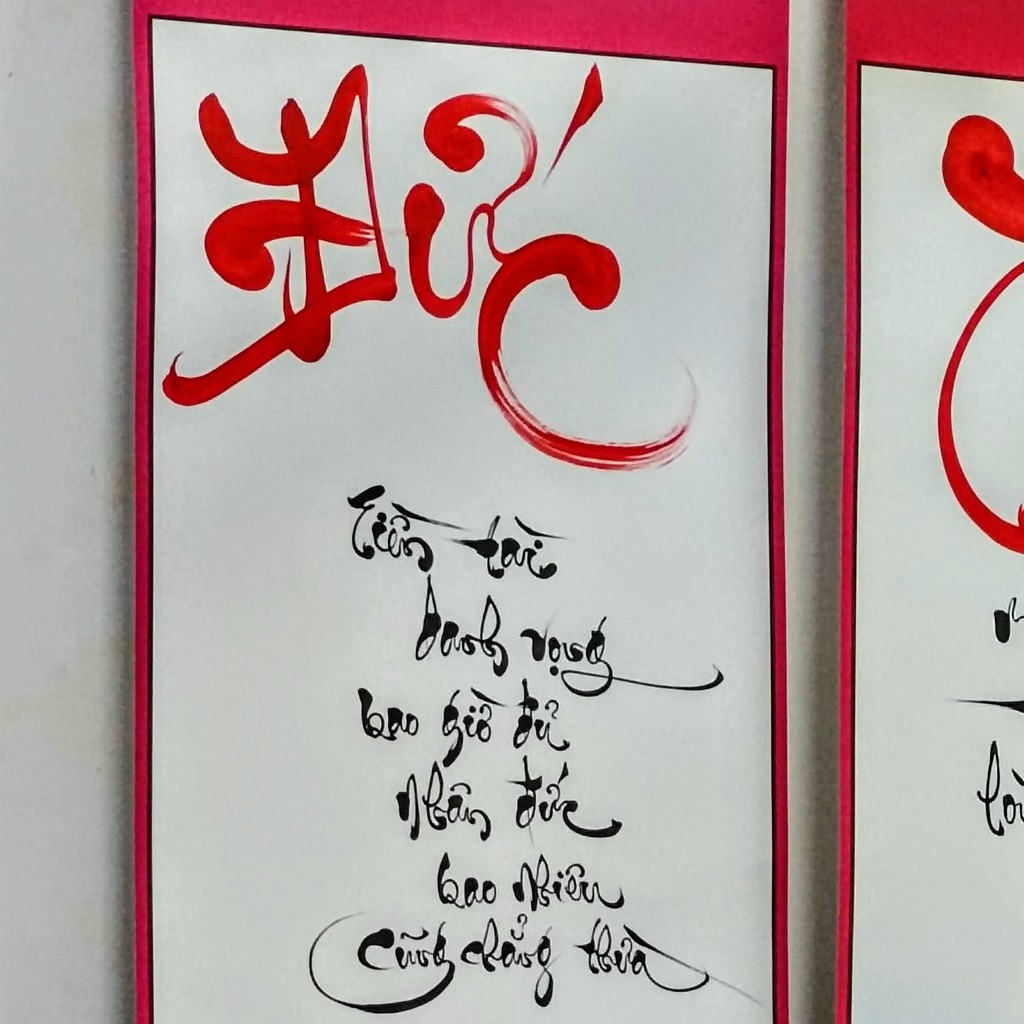 Đức
Tiền tài
danh vọng
bao giờ đủ
Nhân đức
bao nhiêu
Cũng chẳng thừa